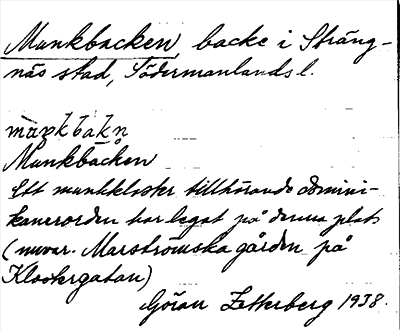 Munkbacken, backe i Sträng-
näs stad, Södermanlands l.
muŋkbakn̥
Munkbacken
Ett munkkloster tillhörande domini-
kanerorden har legat på denna plats
(nuvar. Marströmska gården på
Klostergatan)
Göran Zetterberg 1938.